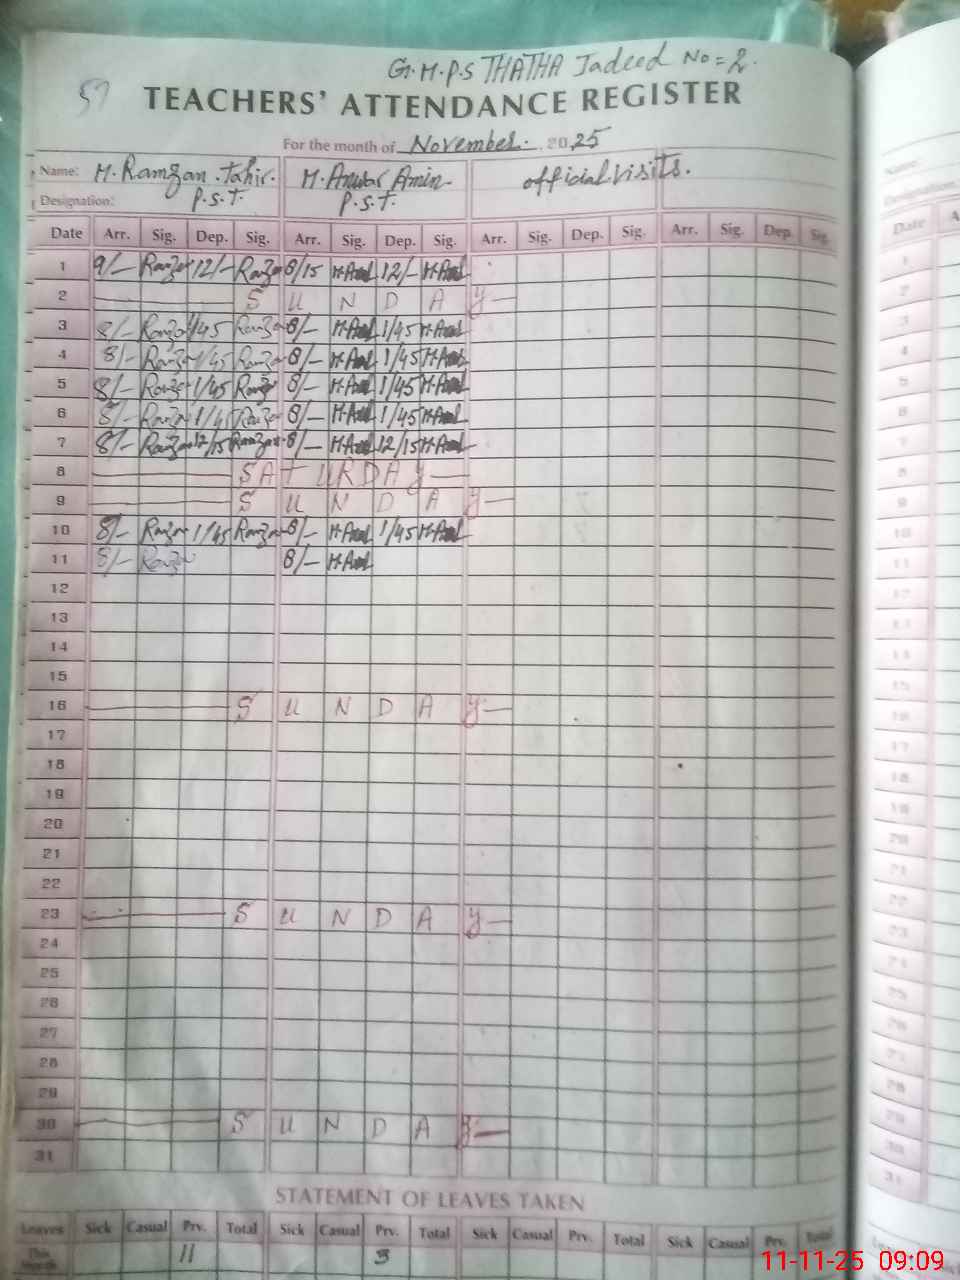 G.M.P.S THATHA Jadeed No = 2.
57
TEACHERS' ATTENDANCE REGISTER
For the month of November. 2025
Name: M. Ramzan Tahir. M. Anwar Amin official visits.
Designation: P.S.T. P.S.T.
Date Arr. Sig. Dep. Sig. Arr. Sig. Dep. Sig. Arr. Sig. Dep. Sig. Arr. Sig. Dep. Sig.
1 9/- 12/- 8/15 12/-
2 S U N D A Y
3 8/- 1/45 8/- 1/45
4 8/- 1/45 8/- 1/45
5 8/- 1/45 8/- 1/45
6 8/- 1/45 8/- 1/45
7 8/- 12/15 8/- 12/15
8 SATURDAY
9 S U N D A Y
10 8/- 1/45 8/- 1/45
11 8/- 8/-
12
13
14
15
16 S U N D A Y
17
18
19
20
21
22
23 S U N D A Y
24
25
26
27
28
29
30 S U N D A Y
31
STATEMENT OF LEAVES TAKEN
Leaves Sick Casual Prv. Total Sick Casual Prv. Total Sick Casual Prv. Total Sick Casual Prv. Total
This Month 11 3
11-11-25 09:09